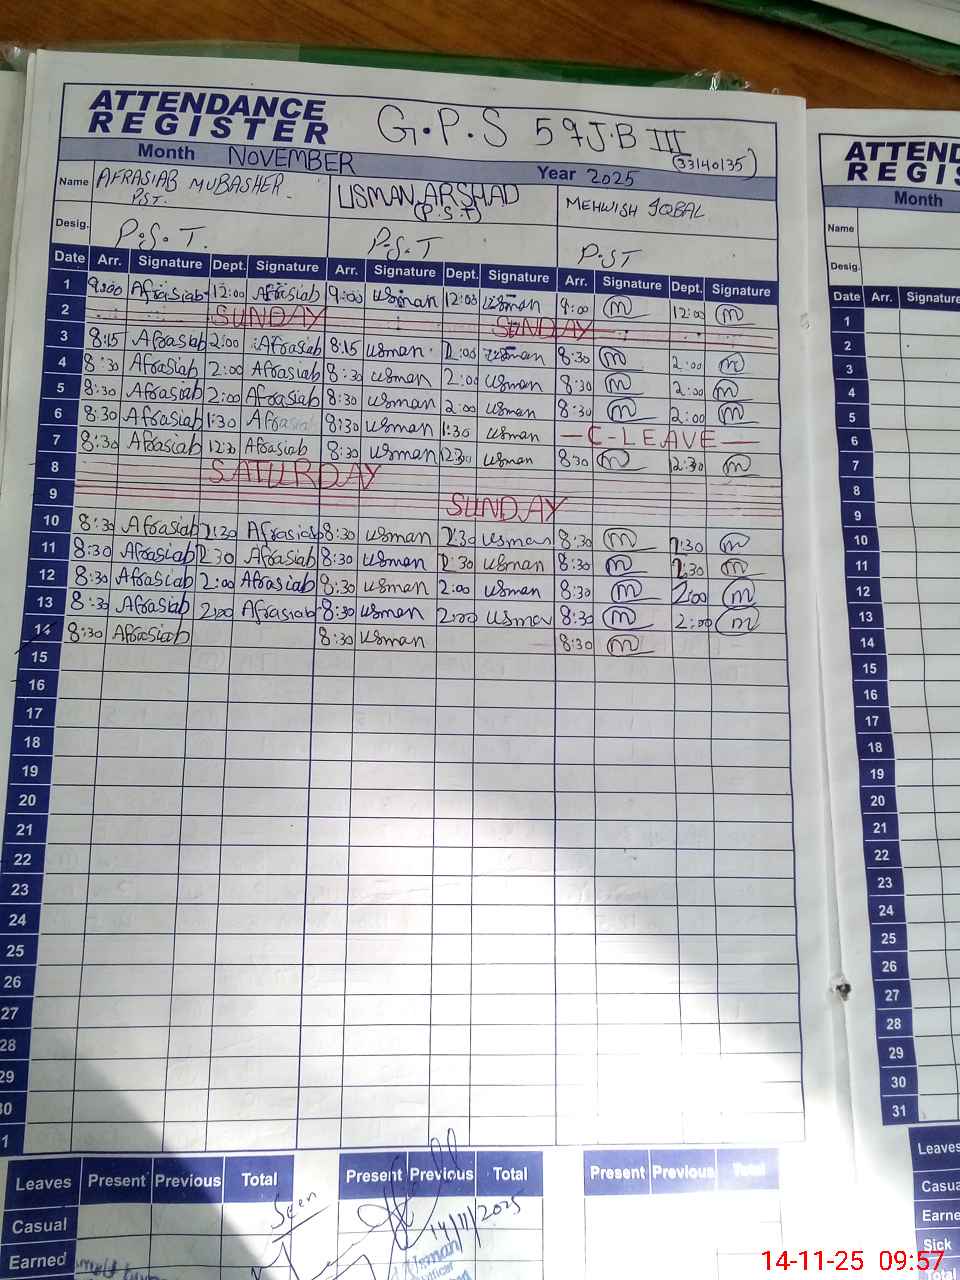 ATTENDANCE REGISTER
G.P.S 59 J.B III
(33140135)
Month NOVEMBER Year 2025
Name AFRASIAB MUBASHER. PST. USMAN ARSHAD (P.S.T) MEHWISH IQBAL
Desig. P.S.T. P.S.T P.ST
Date Arr. Signature Dept. Signature Arr. Signature Dept. Signature Arr. Signature Dept. Signature
1 9:00 Afrasiab 12:00 Afrasiab 9:00 usman 12:00 usman 9:00 m 12:00 m
2 SUNDAY SUNDAY
3 8:15 Afrasiab 2:00 Afrasiab 8:15 usman 2:00 usman 8:30 m 2:00 m
4 8:30 Afrasiab 2:00 Afrasiab 8:30 usman 2:00 usman 8:30 m 2:00 m
5 8:30 Afrasiab 2:00 Afrasiab 8:30 usman 2:00 usman 8:30 m 2:00 m
6 8:30 Afrasiab 1:30 Afrasiab 8:30 usman 1:30 usman — C-LEAVE —
7 8:30 Afrasiab 12:30 Afrasiab 8:30 usman 12:30 usman 8:30 m 12:30 m
8 SATURDAY
9 SUNDAY
10 8:30 Afrasiab Afrasiab 8:30 usman usman 8:30 m m
11 8:30 Afrasiab Afrasiab 8:30 usman usman 8:30 m m
12 8:30 Afrasiab 2:00 Afrasiab 8:30 usman 2:00 usman 8:30 m 2:00 m
13 8:30 Afrasiab 2:00 Afrasiab 8:30 usman 2:00 usman 8:30 m 2:00 m
14 8:30 Afrasiab 8:30 usman 8:30 m
15
16
17
18
19
20
21
22
23
24
25
26
27
28
29
30
31
Leaves Present Previous Total Present Previous Total Present Previous Total
Casual Seen
14/11/2025
Earned
ATTEND
REGIS
Month
Name
Desig.
Date Arr. Signature
1
2
3
4
5
6
7
8
9
10
11
12
13
14
15
16
17
18
19
20
21
22
23
24
25
26
27
28
29
30
31
Leaves
Casua
Earne
Sick
Total
14-11-25 09:57